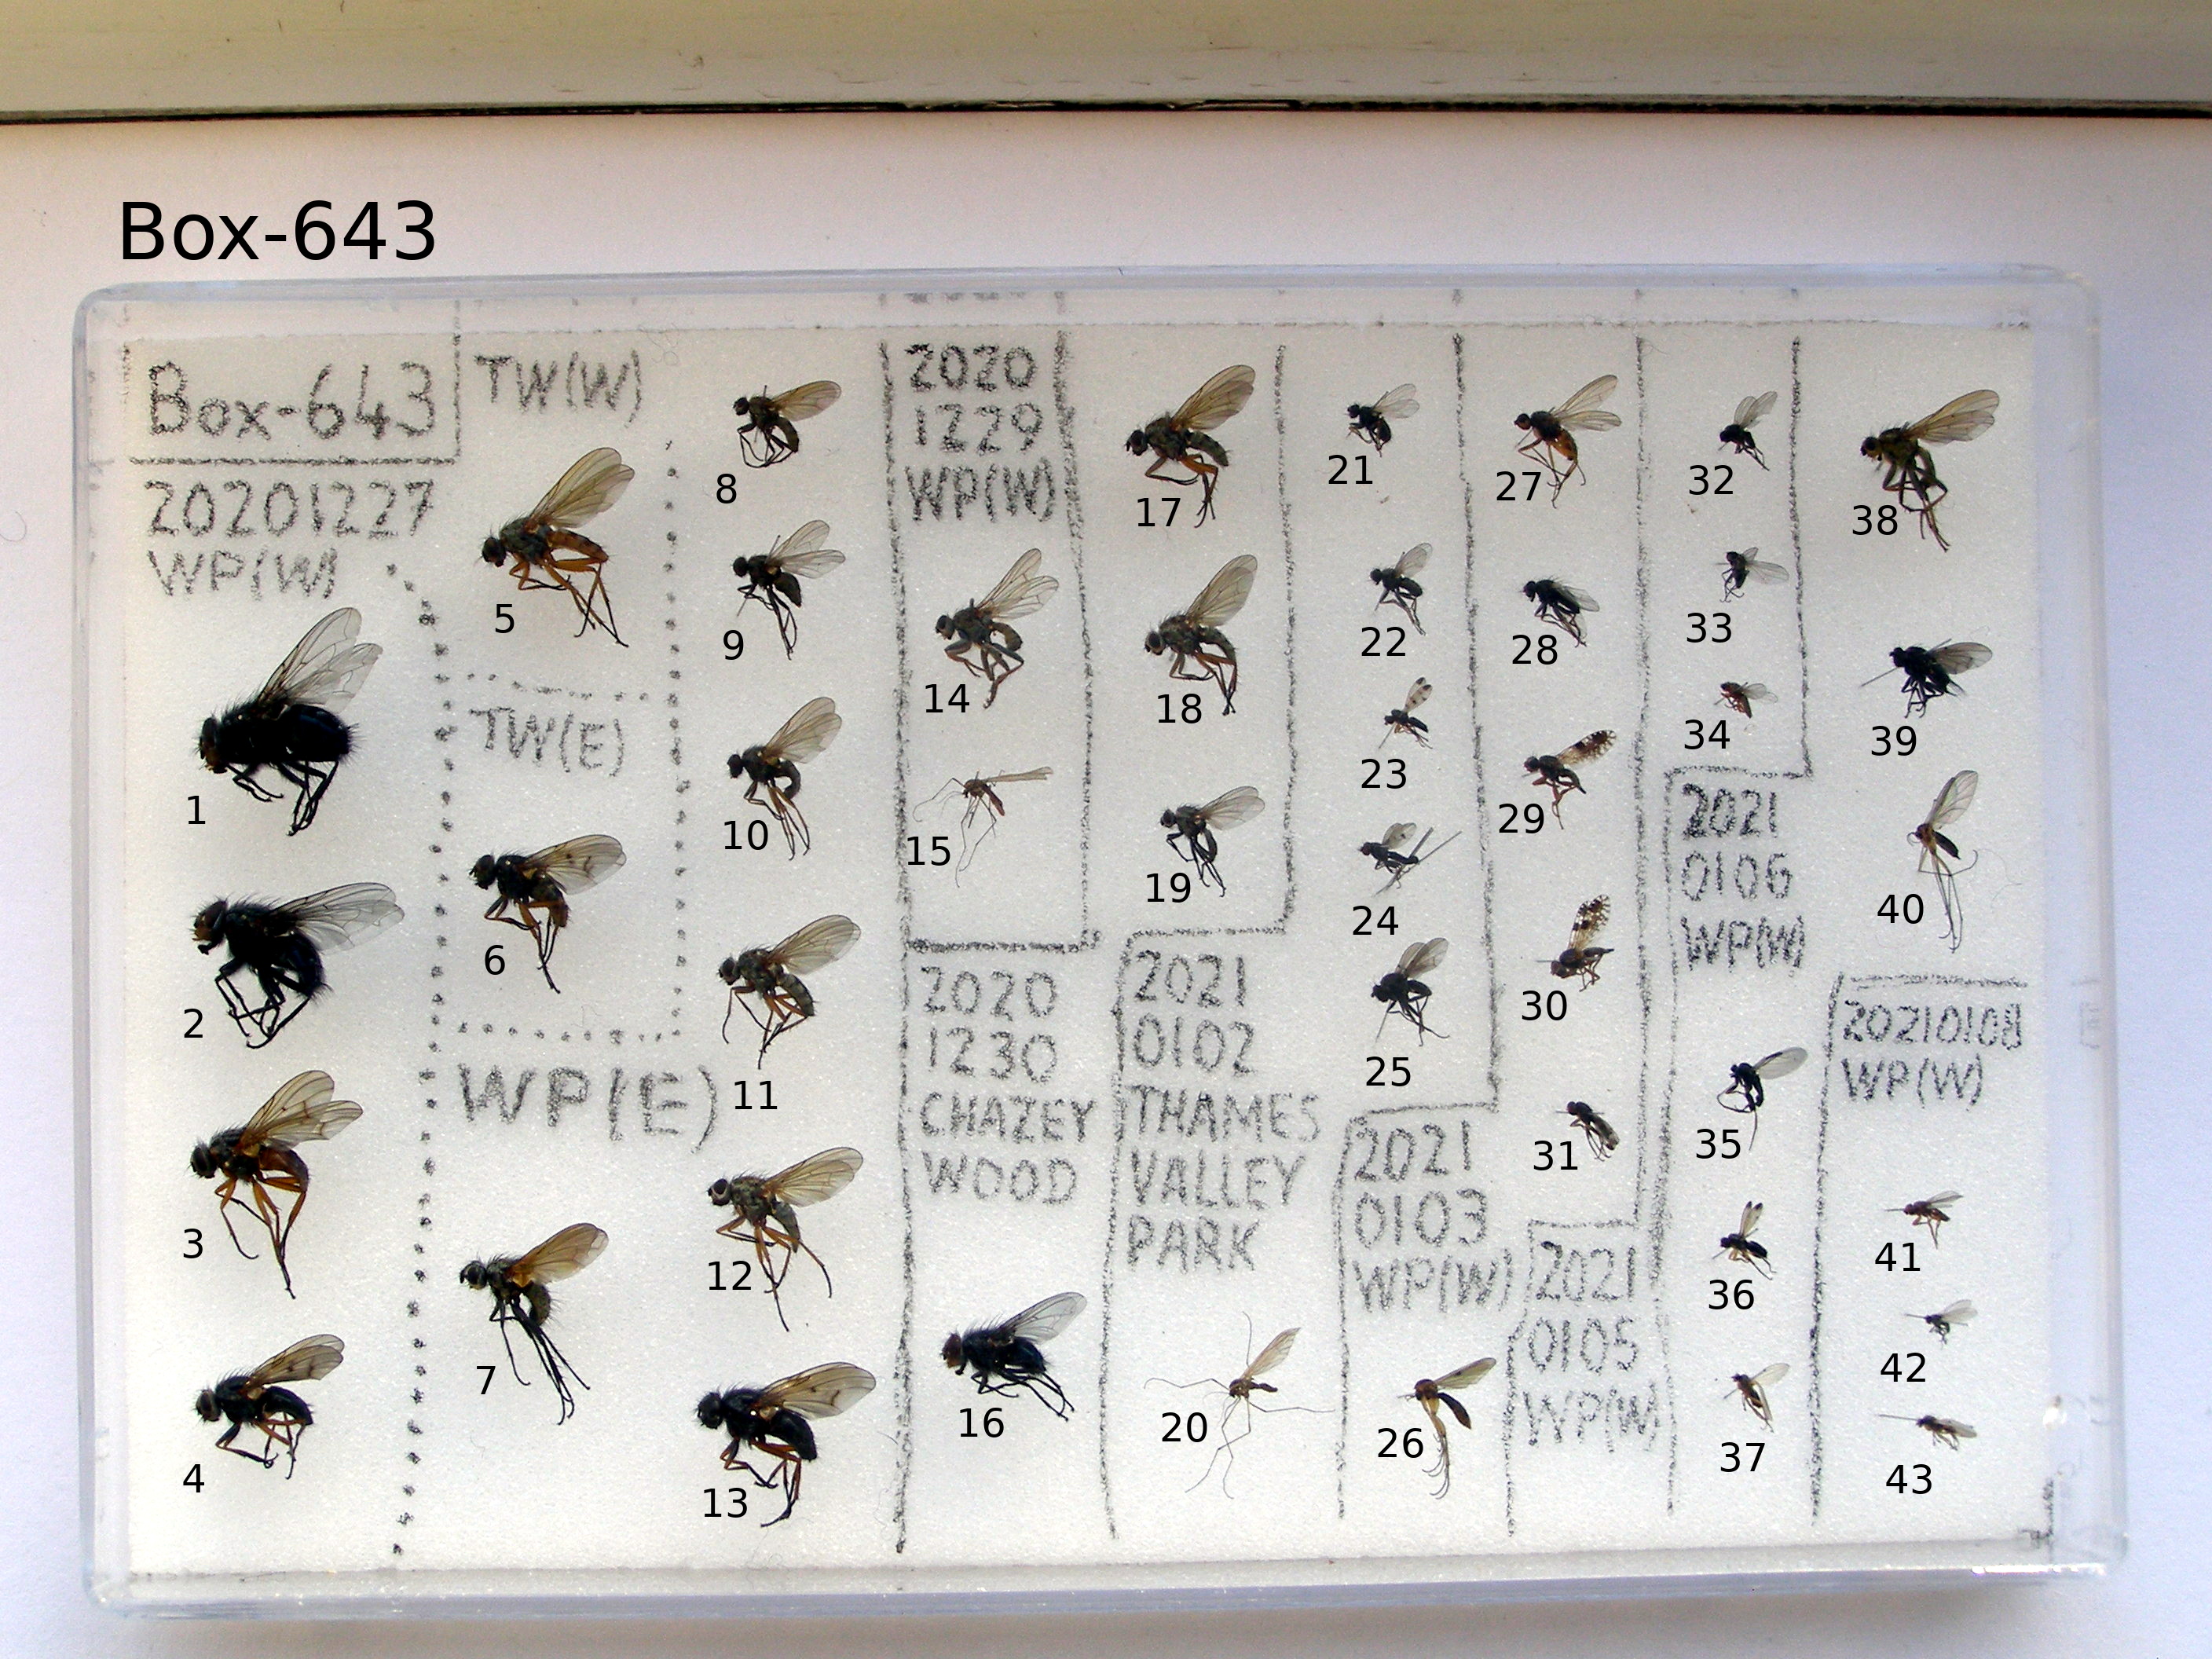 Box-643
Box-643
20201227
WP(W)
1
2
3
4
TW(W)
5
TW(E)
6
WP(E)
7
8
9
10
11
12
13
2020
1229
WP(W)
14
15
2020
1230
CHAZEY
WOOD
16
17
18
19
2021
0102
THAMES
VALLEY
PARK
20
21
22
23
24
25
2021
0103
WP(W)
26
27
28
29
30
31
2021
0105
WP(W)
32
33
34
2021
0106
WP(W)
35
36
37
38
39
40
20210108
WP(W)
41
42
43